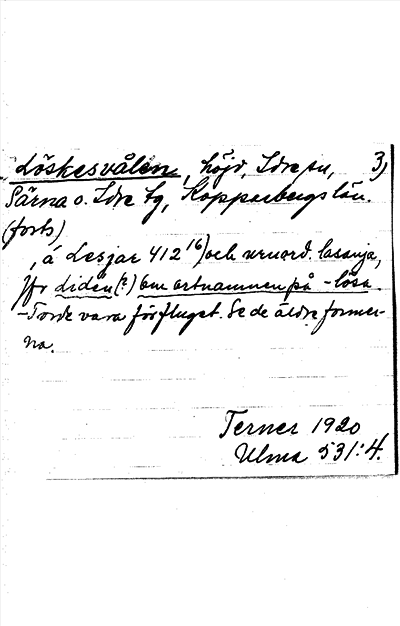 Löskesvålen, höjd, Idre sn, 3)
Särna o. Idre tg, Kopparbergs län.
(forts)
, á Lesjar 412 16) och urnord. lasuja,
Jfr Lidén (?) om ortnamnen på -lösa.
-Torde vara förfluget. Se de äldre former-
na.
Terner 1920
Ulma 531:4.